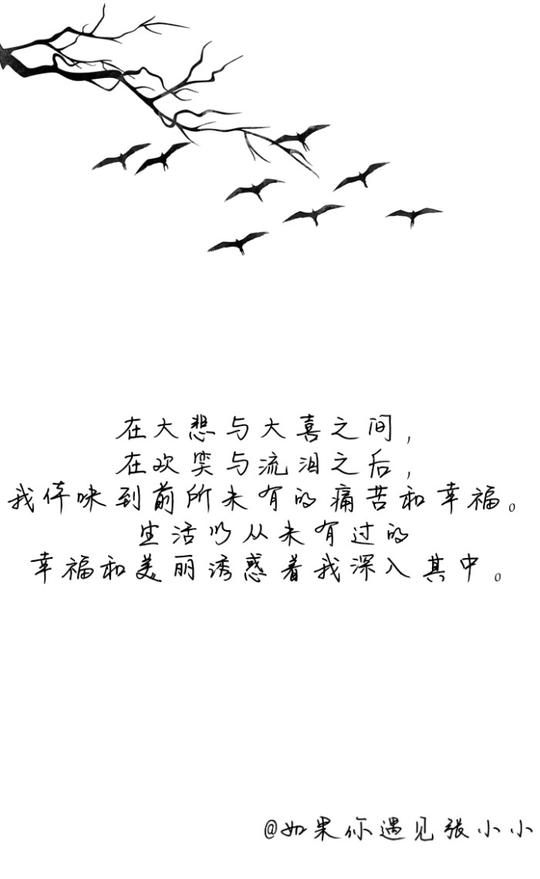 在大悲与大喜之间，
在欢笑与流泪之后，
我体味到前所未有的痛苦和幸福。
生活以从未有过的
幸福和美丽诱惑着我深入其中。
@如果你遇见张小小